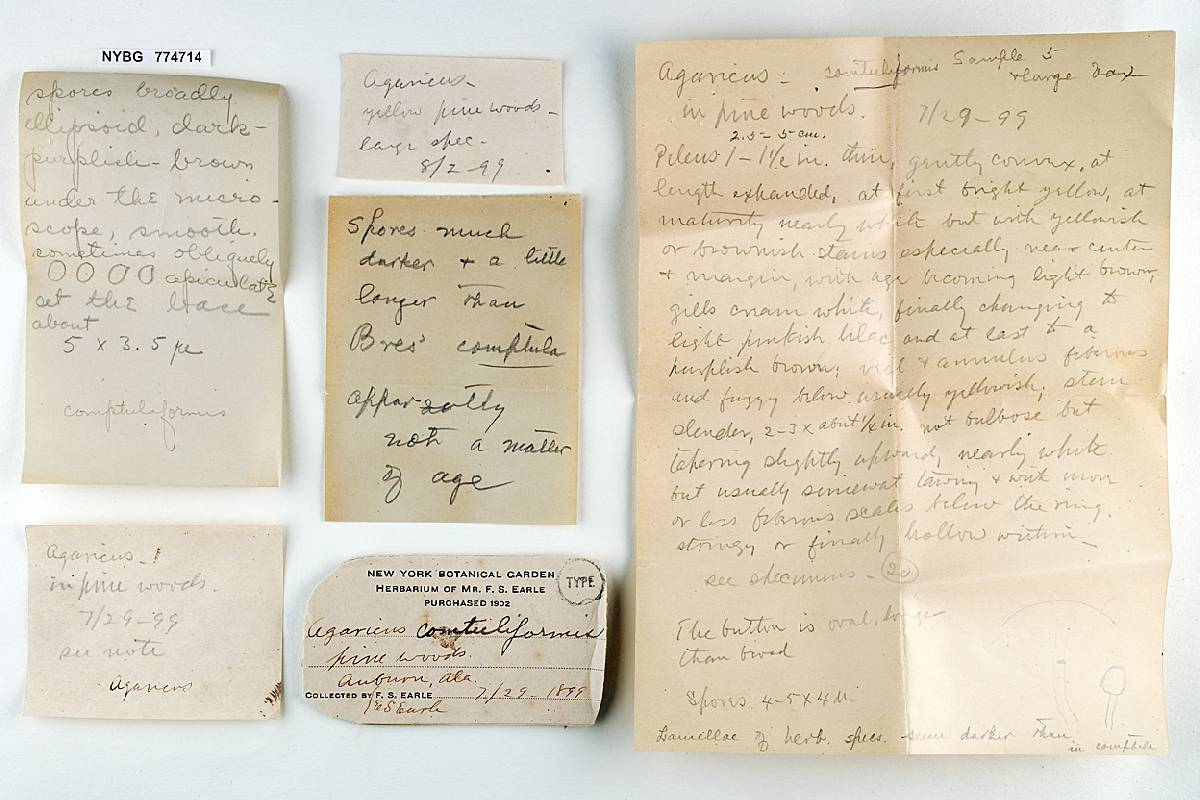 NYBG 774714
spores broadly
ellipsoid, dark-
purplish-brown
under the micro-
scope, smooth,
sometimes obliquely
apiculate
at the base
about
5 x 3.5 µ
comptuliformis
Agaricus-
yellow pine woods-
large spec-
8/2-99
Spores much
darker + a little
longer than
Bres' comptula
apparently
not a matter
of age
Agaricus-!
in pine woods.
7/29-99
see note
Agaricus
NEW YORK BOTANICAL GARDEN
TYPE
HERBARIUM OF MR. F. S. EARLE
PURCHASED 1902
Agaricus comtuliformis
pine woods
Auburn, Ala.
COLLECTED BY F. S. EARLE 7/29-1899
F S Earle
Agaricus: comtuliformis Sample 5
+ large
in pine woods. 7/29-99
2.5-5 cm.
Pileus 1-1½ in. thin, gently convex, at
length expanded, at first bright yellow, at
maturity nearly white but with yellowish
or brownish stains especially near center
+ margin, with age becoming light brown;
gills cream white, finally changing to
light pinkish lilac and at last to a
purplish brown; veil + annulus fibrous
and fuzzy below usually yellowish; stem
slender, 2-3 x about ¼ in. not bulbose but
tapering slightly upward, nearly white
but usually somewat tawny + with more
or less fibrous scales below the ring.
stringy or finally hollow within-
see specimens-
The button is oval, longer
than broad
Spores 4-5 x 4 µ.
Lamellae of herb. specs. seem darker than
in comptula